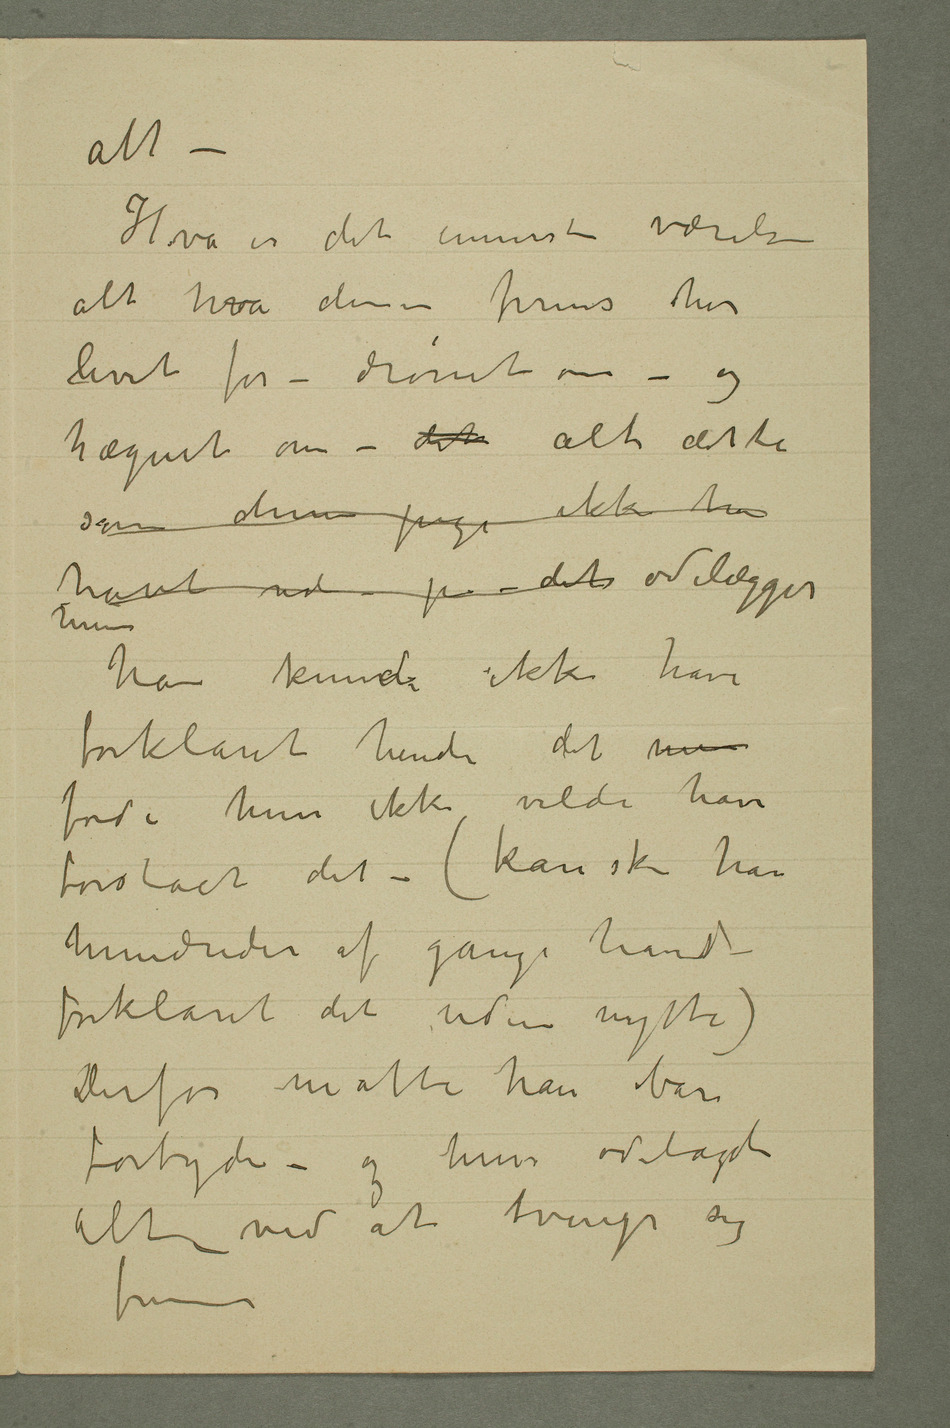 alt –
Hva er det inderste værelse
alt hva denne prins har
levet for – drømt om – og
hægnet om – det alt dette
som denne pige ikke har
havt ud – det ødelægger
hun
han kunde ikke have
forklaret hende det
fordi hun ikke vilde have
forstået det – (kanske han
hundreder af gange havde
forklaret det uden nytte)
Derfor måtte han bare
forbyde – og hun ødelagde
alt ved at tvinge sig
frem